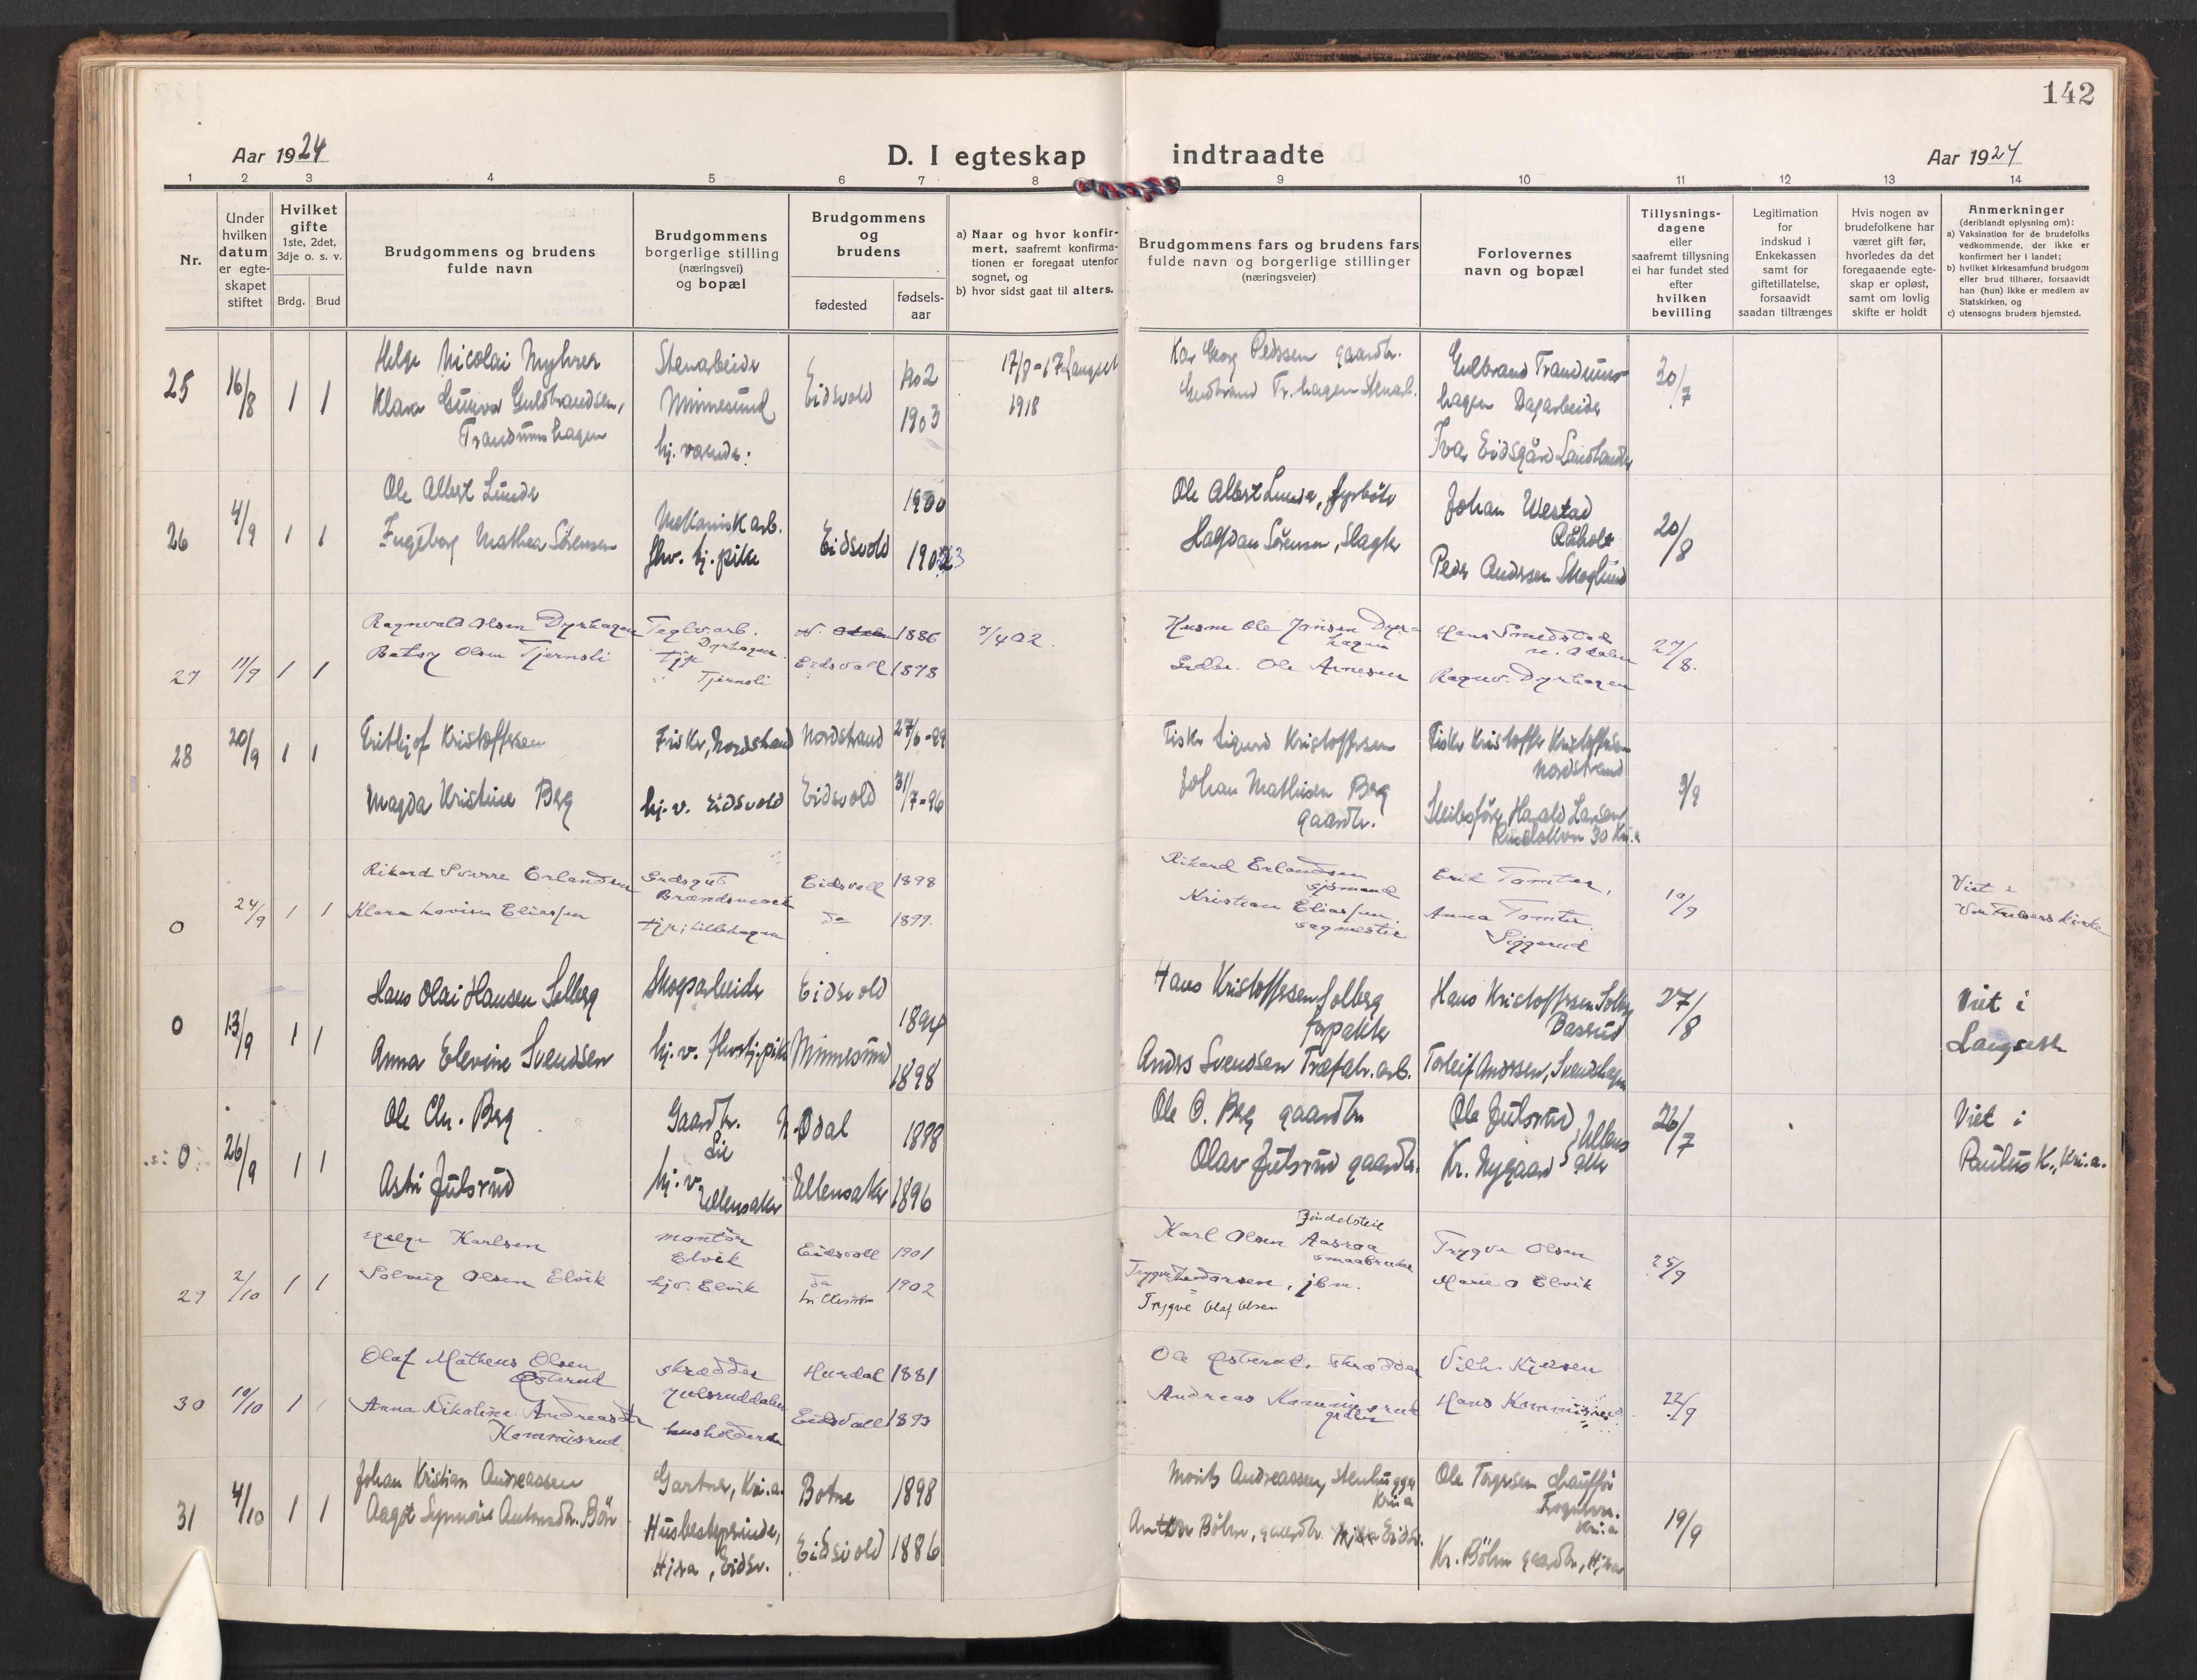 142
Aar 1924
D. I egteskap indtraadte
Aar 1924
1 2 3 4 5 6 7 8 9 10 11 12 13 14
Nr.
Under hvilken datum er egte-skapet stiftet
Hvilket gifte
1ste, 2det, 3dje o. s. v.
Brdg. Brud
Brudgommens og brudens fulde navn
Brudgommens borgerlige stilling (næringsvei) og bopæl
Brudgommens og brudens
fødested
fødsels-aar
a) Naar og hvor konfir-mert, saafremt konfirma-tionen er foregaat utenfor sognet, og
b) hvor sidst gaat til alters.
Brudgommens fars og brudens fars fulde navn og borgerlige stillinger (næringsveier)
Forlovernes navn og bopæl
Tillysnings-dagene eller saafremt tillysning ei har fundet sted efter hvilken bevilling
Legitimation for indskud i Enkekassen samt for giftetillatelse, forsaavidt saadan tiltrænges
Hvis nogen av brudefolkene har været gift før, hvorledes da det foregaaende egte-skap er opløst, samt om lovlig skifte er holdt
Anmerkninger
(deriblandt oplysning om):
a) Vaksination for de brudefolks vedkommende, der ikke er konfirmert her i landet;
b) hvilket kirkesamfund brudgom eller brud tilhører, forsaavidt han (hun) ikke er medlem av Statskirken, og
c) utensogns bruders hjemsted.
25 16/8 1 1
Helge Nicolai Myhrer
Klara Gudbrandsen,
Trandumshagen
Stenarbeider
Minnesund
hj. værende:
Eidsvold
1902
1903
1918
Georg Pedersen gaardbr.
Gulbrand Trandums-
hagen Dagarbeider
Ivar Eidsgård Landhandler
26 4/9 1 1
Ole Albert Lunde
Ingeborg Mathea Sörensen
Mekanisk arb.
hj. pike
Eidsvold
1900
Ole Albert Lunde, fyrböter
Halfdan Sörensen, Slagter
Johan Westad
Råholt
Peder Andersen Skoglund
20/8
27 11/9 1 1
Ragnvald Olsen Dyrhagen
Betsy Olsen Tjernsli
Teglv.arb.
Dyrhagen
tjp
Tjernsli
Eidsvoll
1886
1878
Husm Ole Jansen Dyr-
hagen
Ole Arnesen
Hans Smedstad
Ragnv. Dyrhagen
27/8.
28 20/9 1 1
Frithjof Kristoffersen
Magda Kristine Berg
Fisker, Nordstrand
hj. v. Eidsvold
Nordstrand
Eidsvold
27/6-89
31/7-96
Fisker Sigurd Kristoffersen
Johan Mathisen Berg
gaardbr.
Fisker Kristoffer Kristoffersen
Nordstrand
Harald Larsen
3/9
0 24/9 1 1
Rikard Sverre Erlandsen
Klara Lovise Eliassen
Brændsmork
tjp; Lillehagen
Eidsvoll
do
1898
1899.
Rikard Erlandsen
sjömand
Kristian Eliassen,
sagmester
Erik Tomter,
Anna Tomter.
Siggerud
10/9
Viet i
Vor Frelsers kirke
0 13/9 1 1
Hans Olai Hansen Solberg
Anna Elevine Svendsen
Skogarbeider
hj. v.
Eidsvold
Minnesund
1894
1898
Hans Kristoffersen Solberg
forpakter
Anders Svendsen Træfabr. arb.
Hans Kristoffersen Solberg
Torleif Andersen, Svendshagen
27/8
Viet i
Langseth
0 26/9 1 1
Ole Chr. Berg
Astri Julsrud
Gaardbr.
Lie
hj. v.
Ullensaker
N. Odal
Ullensaker
1898
1896
Ole O. Berg gaardbr
Olav Julsrud gaardbr.
Ole Julsrud
Kr. Nygaard
Ullens
aker
26/7
Viet i
Paulus K., Kr.a.
29 2/10 1 1
Helge Karlsen
Solveig Olsen Elvik
montör
Elvik
hjv. Elvik
Eidsvoll
do
Lilleström
1901
1902
Karl Olsen Aasroa
smaabruker
jbm.
Trygve Olaf Olsen
Trygve Olsen
Marie O Elvik
25/9
30 10/10 1 1
Olaf Matheus Olsen
Østerud
Anna Nikoline Andreasdtr
Kommisrud
skrædder
Julsruddalen
husholderske
Hurdal
Eidsvoll
1881
1893
Ole Østerud, skrædder
Andreas Kommisrud
grdbr
Vilh. Kjelsen
Hans Kommisrud
22/9
31 4/10 1 1
Johan Kristian Andreassen
Aagot Synnöve Antonsdtr. Böhn
Gartner, Kr.a.
Husbestyrerinde,
Hjera, Eidsv.
Botne
Eidsvold
1898
1886
Morits Andreassen, stenhugger
Kr.a
Anton Böhn, gaardbr. Eidsv.
Ole Torgersen chaufför
Kr.a
Kr. Böhn gaardbr, Hjera
19/9